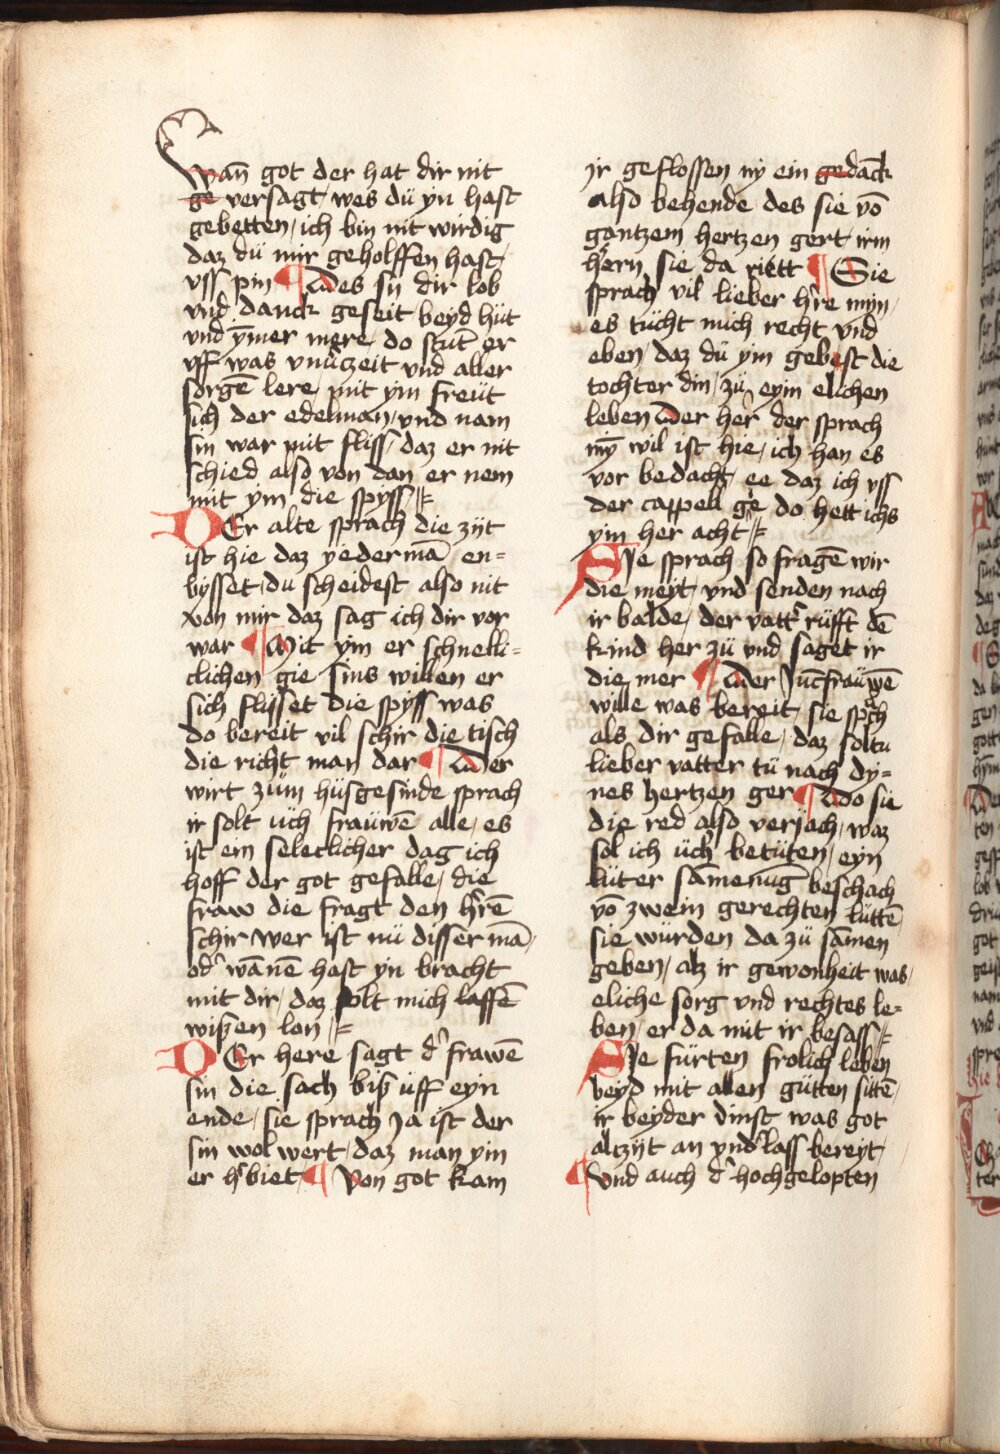 wan̄ got der hat dir nit
ge versagt wes dü yn hast
gebetten / ich bin nit wirdig
daz dü mir geholffen hast /
vss pin ¶ Des sy dir lob
vnd danck geseit beyd hüt
vnd ȳmer mere do stūt er
vff was vnuczeit vnd aller
sorgē lere / mit ym freüt
sich der edelman / vnd nam
sin war mit fliss / daz er nit
schied also von dan er nem
mit ym die spyss //
DEr alte sprach die zÿt
ist hie daz yedermā en=
bysset / du scheidest also nit
von mir daz sag ich dir vor
war ¶ Mit ym er schnelli=
clichen gie sins willen er
sich flysset die spyss was
do bereit vil schir die tisch
die richt man dar ¶ Der
wirt züm hüsgesinde sprach
ir solt üch fraüwē alle / es
ist ein seleclicher dag ich
hoff der got gefalle / die
fraw die fragt den hrē
schir wer ist nü disser mā /
od' wānē hast yn bracht
mit dir / daz solt mich lassē
wißen lon //
DEr here sagt d' frawē
sin die sach biß üff eyn
ende / sie sprach Ja ist der
sin wol wert / daz man ym
er h'biet ¶ Von got kam
jr geflossen ny ein gedāck
also behende des sie vō
gantzem hertzen gert irm
hern sie da riett ¶ Sie
sprach vil lieber h're myn /
es tücht mich recht vnd
eben / daz dü ym gebest die
tochter din / zü eyim elichen
leben Der her der sprach
mȳ wil ist hie / ich han es
vor bedacht / ee daz ich vss
der cappell gē do hett ichs
ym her acht //
SJe sprach so fragē wir
die meyt vnd senden nach
ir balde / der vatt' rüfft dē
kind her zü vnd saget ir
die mer ¶ Der Jücfraüwē
wille was bereit / sie spch
als dir gefalle / daz soltu
lieber vatter tü nach dy=
nes hertzen ger ¶ Do sie
die red also verjach / waz
sol ich üch betüten / eyn
lüter sāmenūg beschach
vō zwein gerechten lüttē
sie würden da zü sāmen
geben / alz ir gewonheit was /
eliche sorg vnd rechtes le=
ben / er da mit ir besass //
SJe fürten frolich leben
beyd mit allen gütten sittē /
ir beyder dinst was got
altzÿt an vnd'lass bereyt /
¶ Vnd auch d' hochgelopten